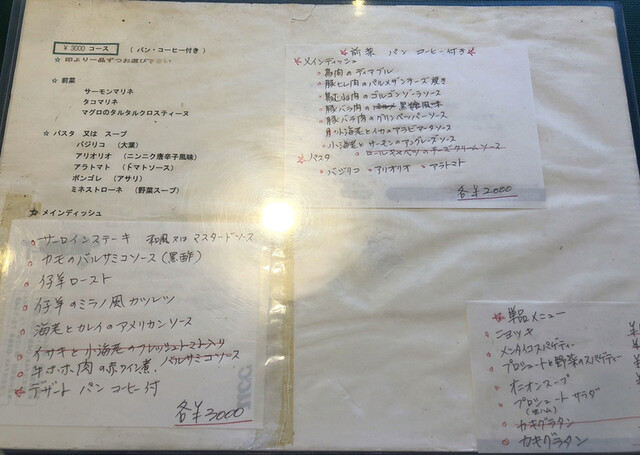 ¥3000 コース (パン・コーヒー付き)
☆ 印より一品ずつお選び下さい
☆ 前菜
サーモンマリネ
タコマリネ
マグロのタルタルクロスティーヌ
☆ パスタ 又は スープ
バジリコ (大葉)
アリオリオ (ニンニク唐辛子風味)
アラトマト (トマトソース)
ボンゴレ (アサリ)
ミネストローネ (野菜スープ)
☆ メインディッシュ
サーロインステーキ 和風又はマスタードソース
カモのバルサミコソース(黒酢)
仔羊ロースト
仔羊のミラノ風カツレツ
海老とカレイのアメリカンソース
イサキと小海老のフレッシュトマト入り
牛ホホ肉の赤ワイン煮,バルサミコソース
デザート パン コーヒー付
各¥3000
☆ 前菜 パン コーヒー付き ☆
☆メインディッシュ
鶏肉のディアブル
豚ヒレ肉のパルメザンチーズ焼き
鶏むね肉のゴルゴンゾーラソース
豚バラ肉の 黒糖風味
豚バラ肉のグリンペッパーソース
小海老とイカのアラビアータソース
小海老とサーモンのアングレーズソース
ロールキャベツのチーズクリームソース
☆パスタ
バジリコ アリオリオ アラトマト
各¥2000
☆単品メニュー
ニョッキ
メンタイコスパゲティー
プロシュートと野菜のスパゲティー
オニオンスープ
プロシュート サラダ
(生ハム)
カキグラタン
カキグラタン